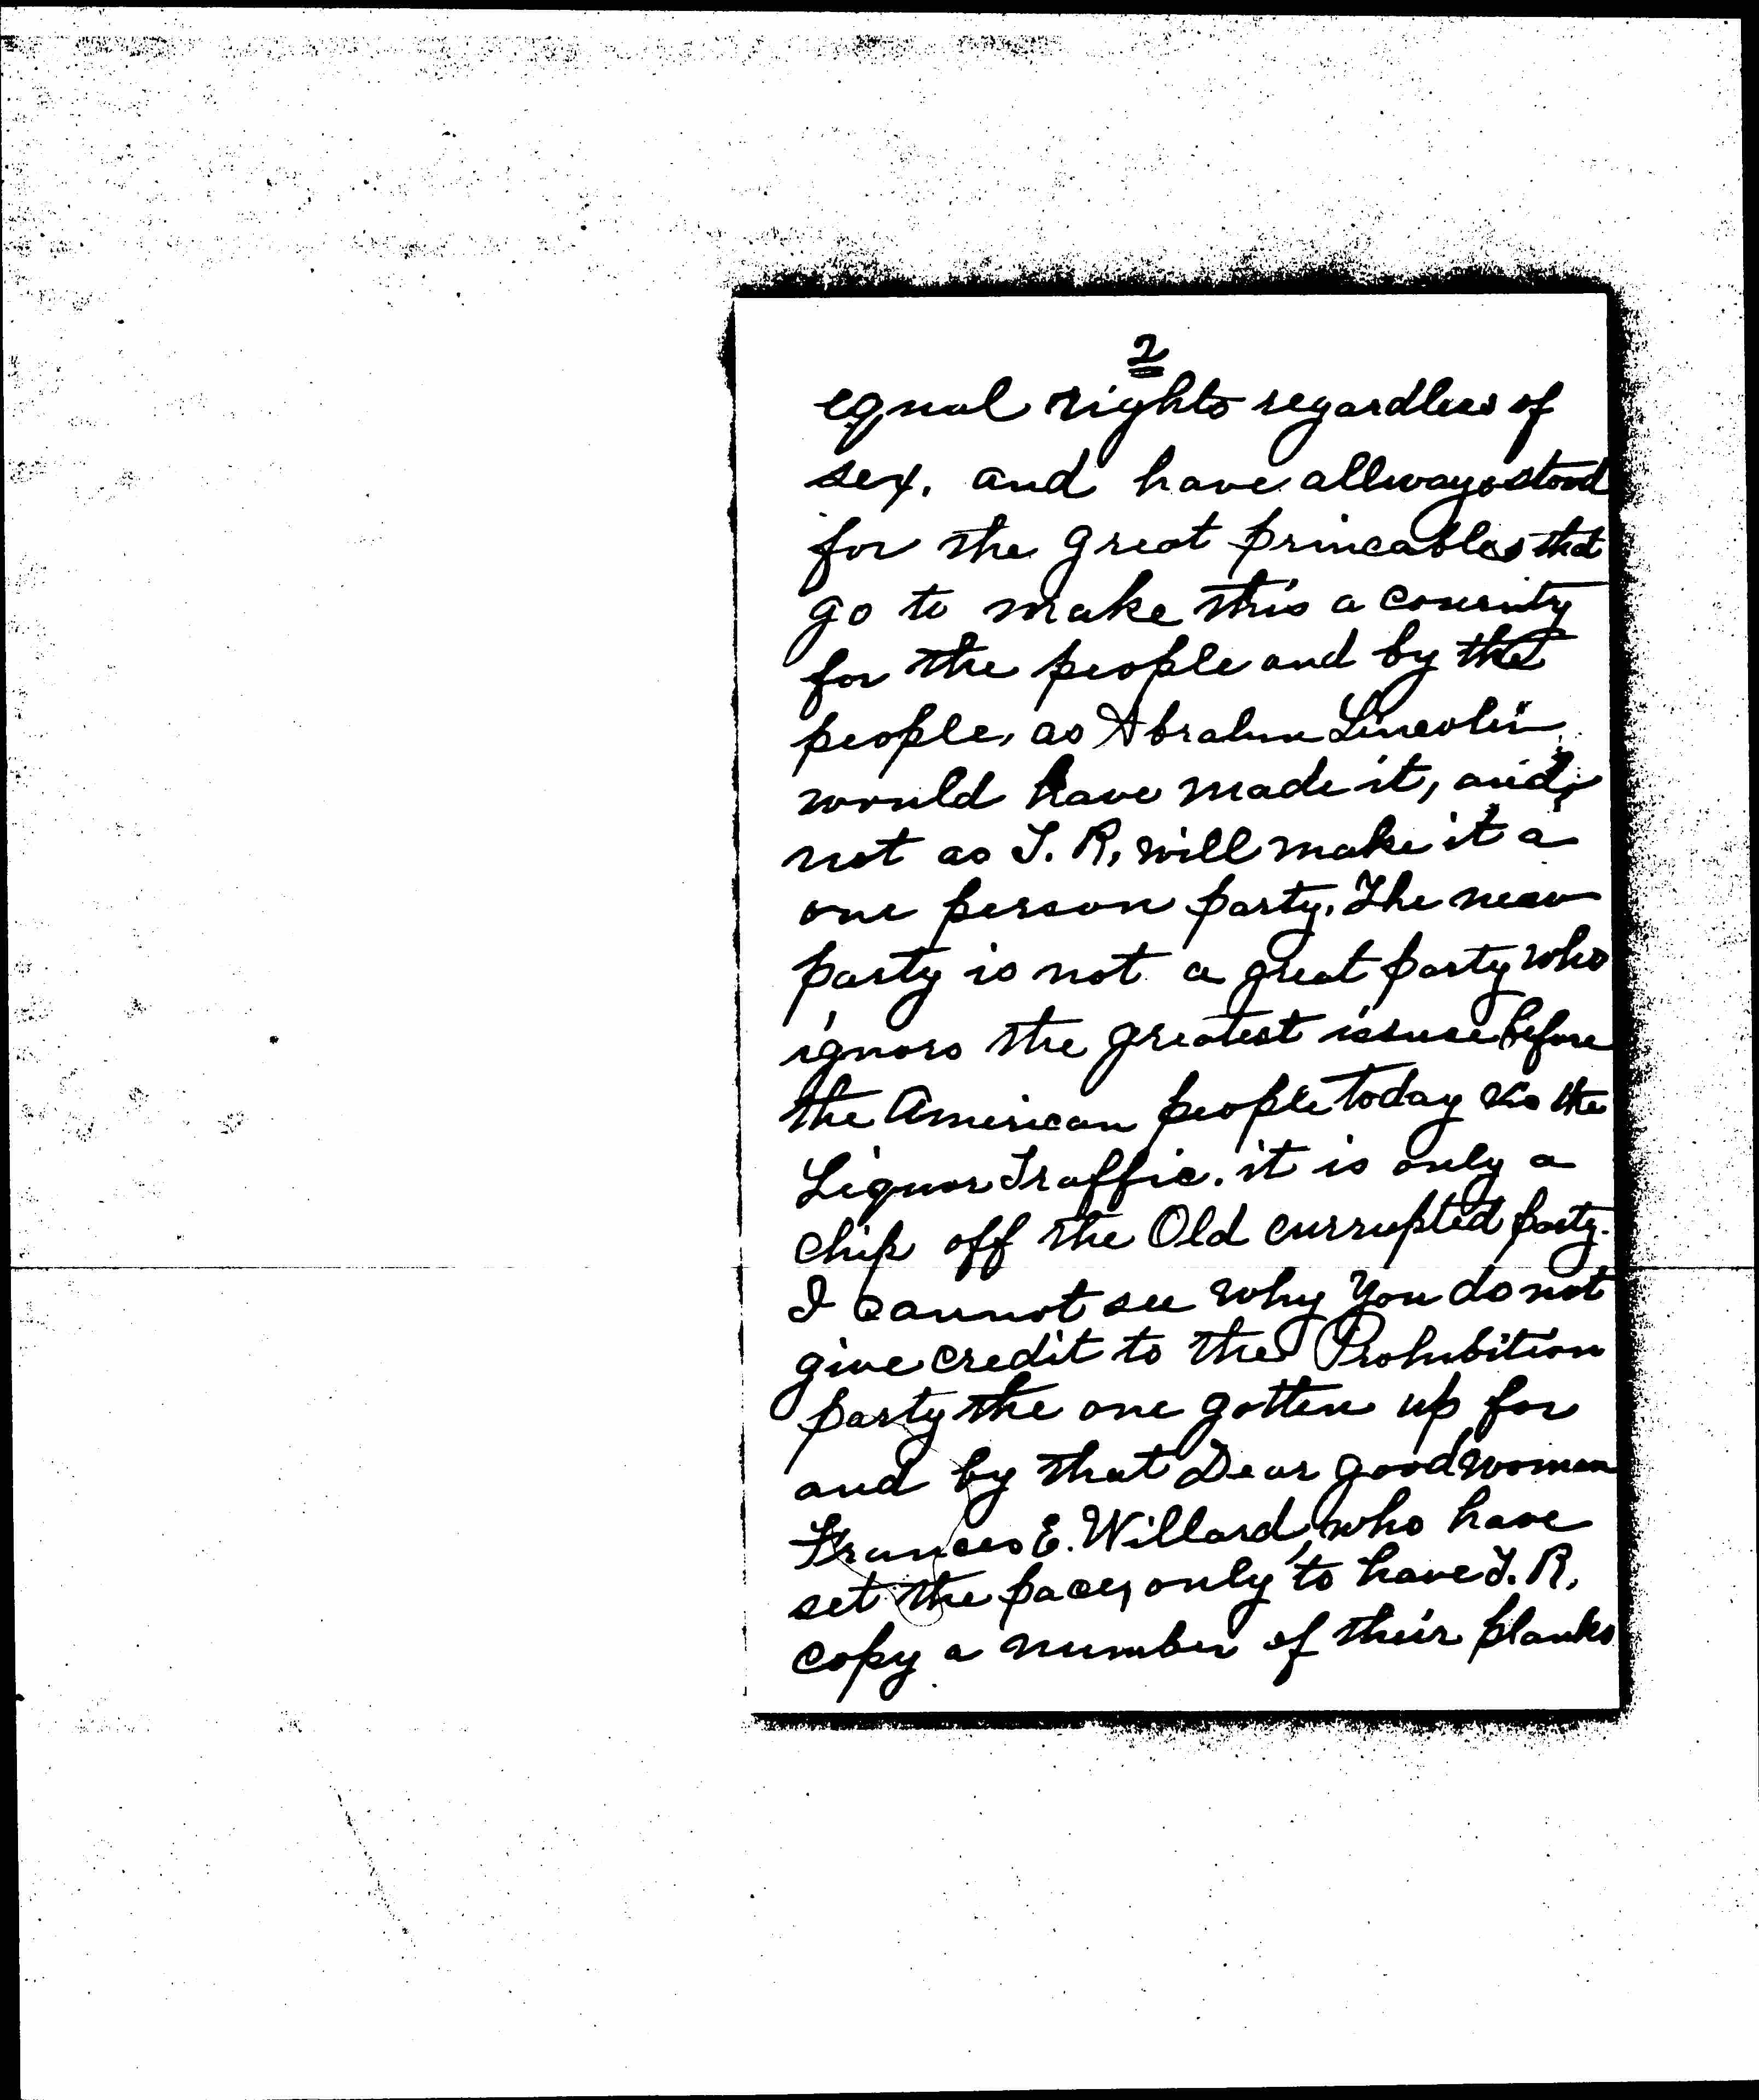 2
equal rights regardless of
sex. and have allways stood
for the great princables that
go to make this a counrity
for the people and by the
people, as Abrahm Lincoln
would have made it, and
not as T. R, will make it a
one person party, The new
party is not a great party who
ignors the greatest issuse before
the American people today the
Liquor Traffic. it is only a
chip off the Old currupted party.
I cannot see why you do not
give credit to the Prohibition
party the one gotten up for
and by that Dear good woman
Frances E. Willard, who have
set the pace, only to have T. R,
copy a number of their planks